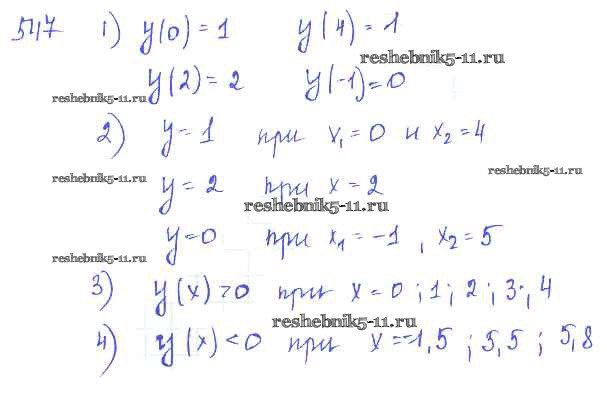 547 1) y(0) = 1 y(4) = 1
reshebnik5-11.ru
y(2) = 2 y(-1) = 0
reshebnik5-11.ru
2) y = 1 при x₁ = 0 и x₂ = 4
reshebnik5-11.ru
reshebnik5-11.ru
y = 2 при x = 2
reshebnik5-11.ru
y = 0 при x₁ = -1 , x₂ = 5
reshebnik5-11.ru
3) y(x) > 0 при x = 0 ; 1 ; 2 ; 3 ; 4
reshebnik5-11.ru
4) y(x) < 0 при x = -1,5 ; 5,5 ; 5,8